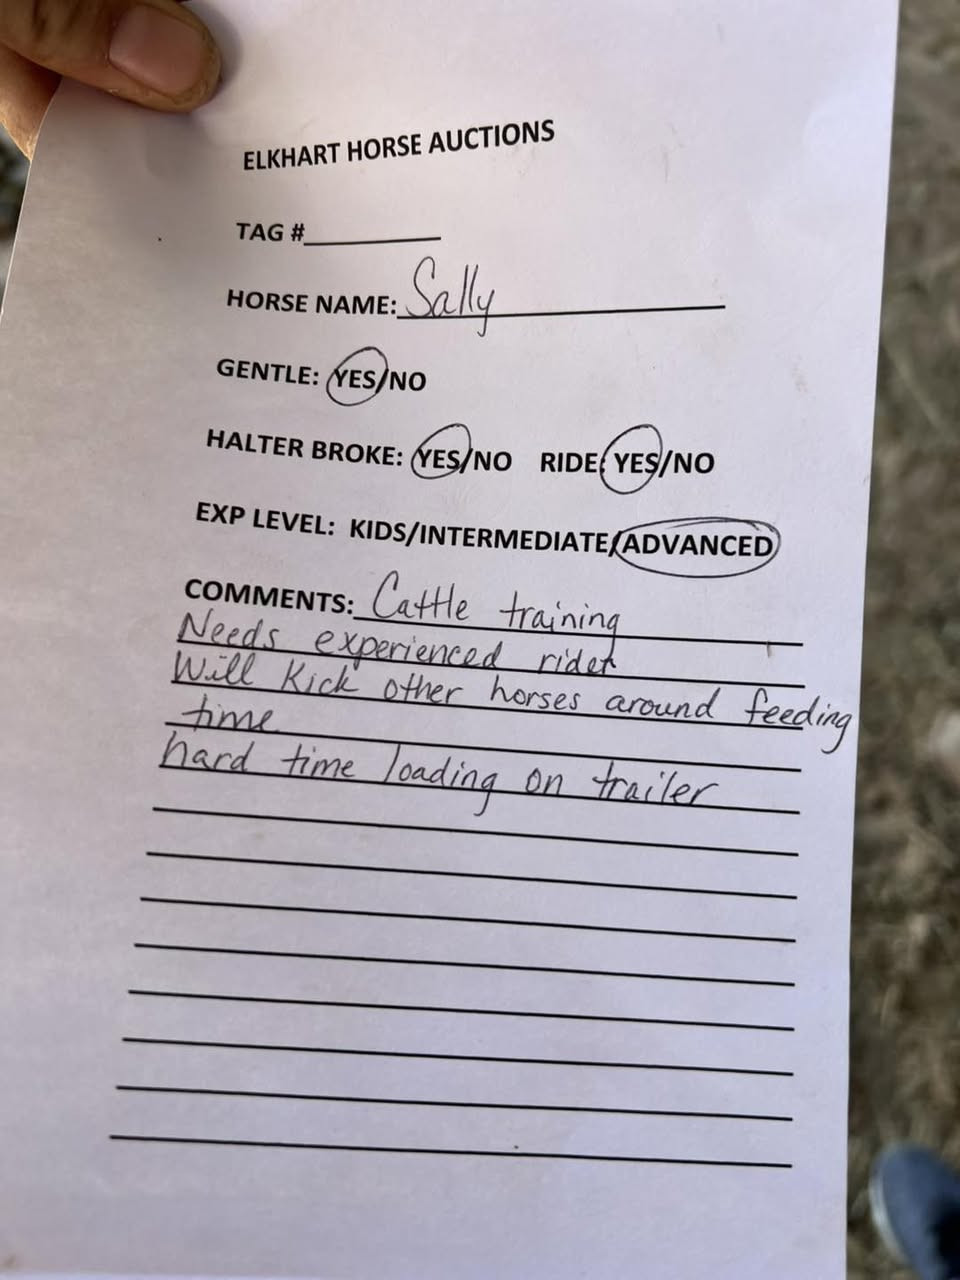 ELKHART HORSE AUCTIONS
TAG #
HORSE NAME: Sally
GENTLE: YES/NO
HALTER BROKE: YES/NO RIDE: YES/NO
EXP LEVEL: KIDS/INTERMEDIATE/ADVANCED
COMMENTS: Cattle training
Needs experienced rider
Will Kick other horses around feeding
time
hard time loading on trailer